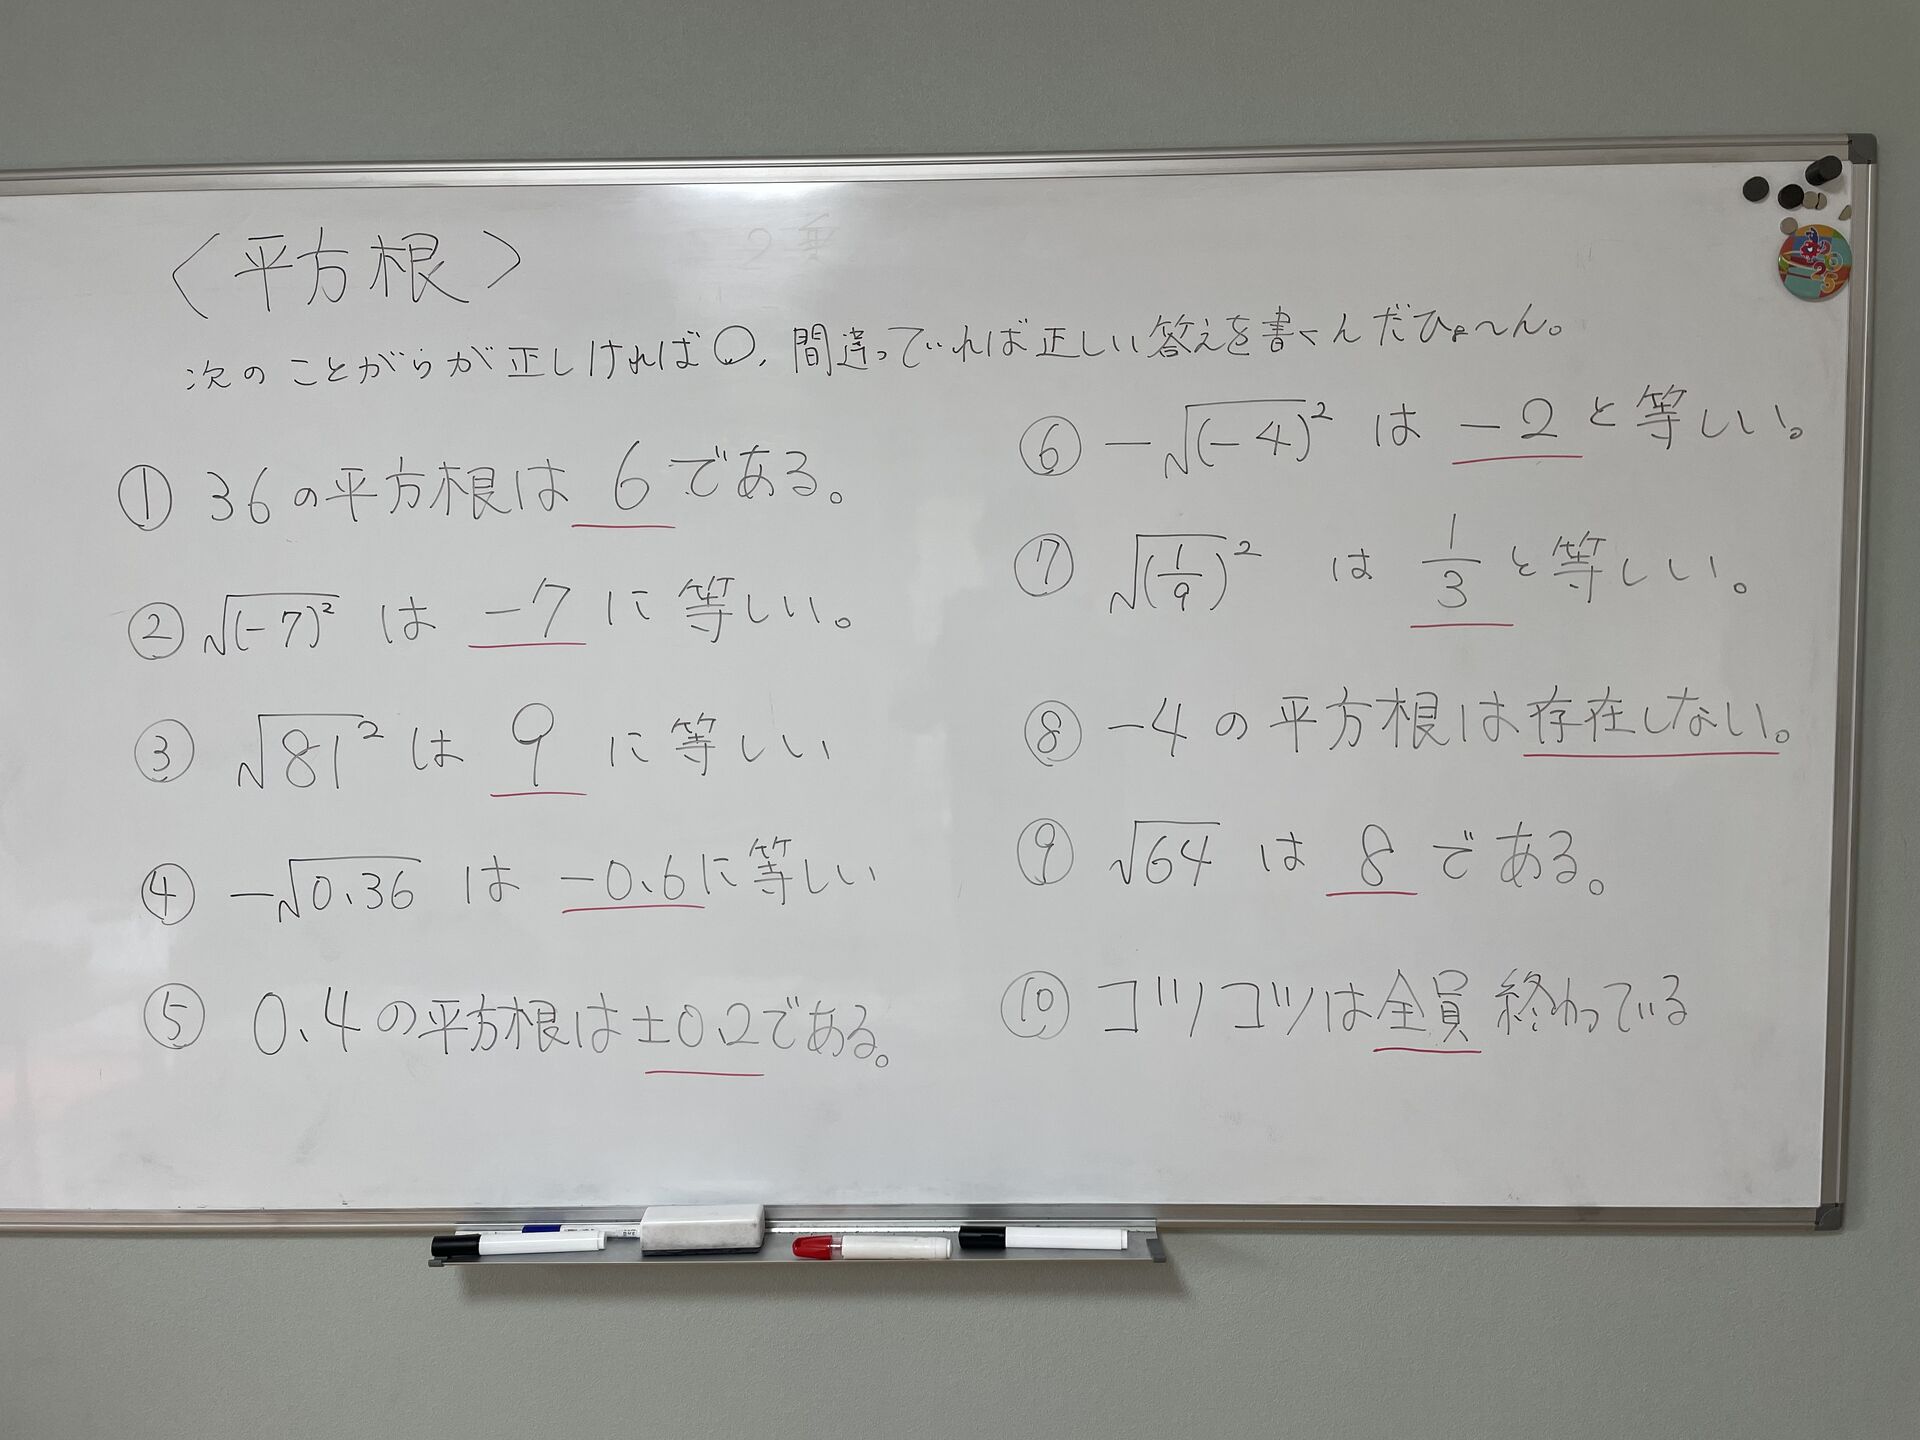 〈平方根〉
次のことがらが正しければ○、間違っていれば正しい答えを書くんだひょ〜ん。
① 36の平方根は 6 である。
② √(-7)² は -7 に等しい。
③ √81² は 9 に等しい
④ -√0.36 は -0.6に等しい
⑤ 0.4の平方根は±0.2である。
⑥ -√(-4)² は -2 と等しい。
⑦ √(1/9)² は 1/3 と等しい。
⑧ -4の平方根は存在しない。
⑨ √64 は 8 である。
⑩ コツコツは全員終わっている